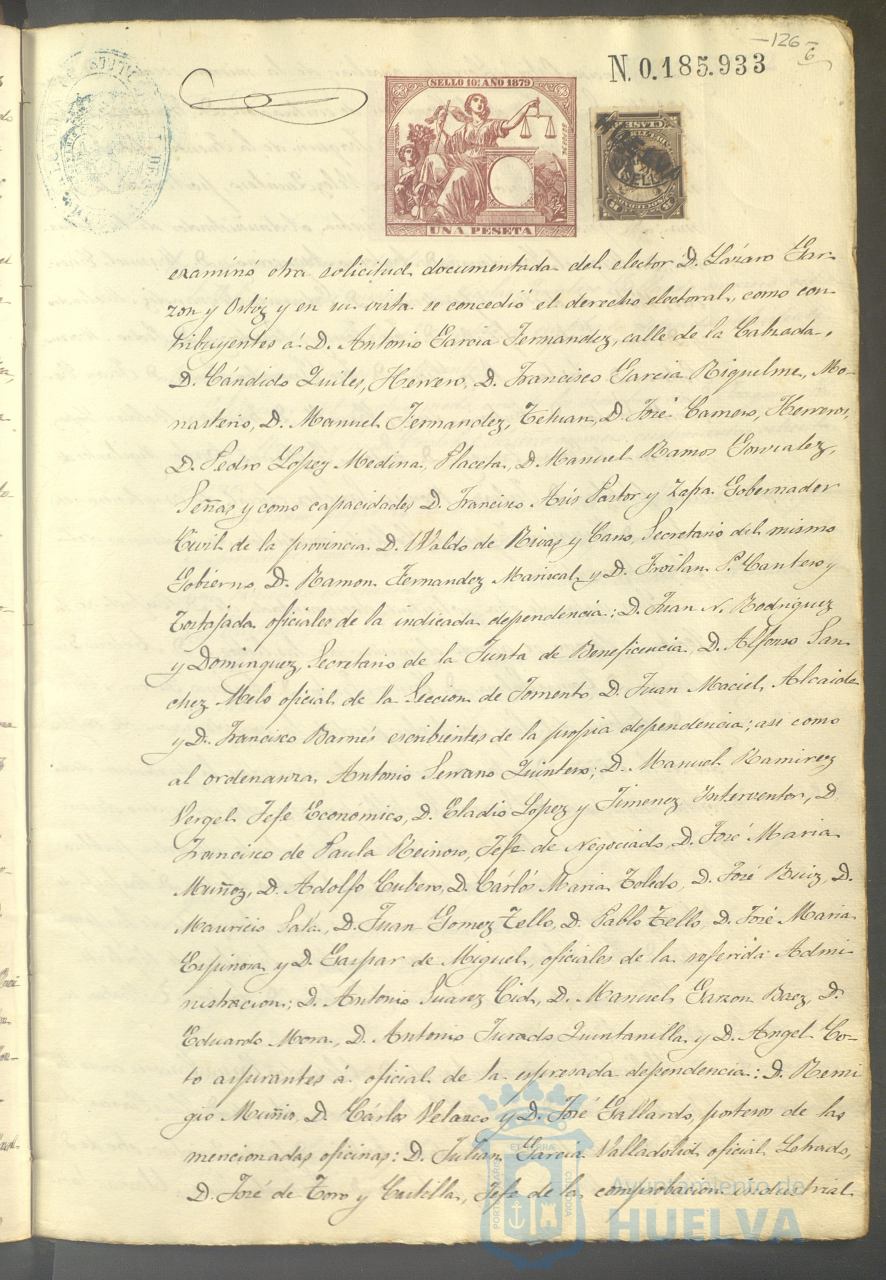 126
6
N. 0.185.933
SELLO 10º AÑO 1879
UNA PESETA
examinó otra solicitud documentada del elector D. Lázaro Gar-
zon y Ortiz y en su vista se concedió el derecho electoral, como con-
tribuyentes á D. Antonio Garcia Fernandez, calle de la Calzada,
D. Cándido Quiles, Herrero, D. Francisco Garcia Riquelme, Mo-
nasterio, D. Manuel Fernandez, Tetuan, D. José Camero, Herreros,
D. Pedro Lopez Medina, Placeta, D. Manuel Ramos Gonzalez,
Señas y como capacidades D. Francisco Asis Pastor y Zapa. Gobernador
Civil de la provincia D. Waldo de Rivas y Cano, Secretario del mismo
Gobierno, D. Ramon Fernandez Mariscal y D. Froilan P. Cantero y
Tortajada oficiales de la indicada dependencia: D. Juan N. Rodriguez
y Dominguez Secretario de la Junta de Beneficencia, D. Alfonso San-
chez Melo oficial de la Seccion de Fomento D. Juan Maciel, Alcaide
y D. Francisco Barnés escribientes de la propia dependencia; asi como
al ordenanza Antonio Serrano Quintero; D. Manuel Ramirez
Vergel Jefe Económico, D. Eladio Lopez y Jimenez Interventor, D.
Francisco de Paula Reinoso, Jefe de Negociado, D. José Maria
Muñoz, D. Adolfo Cubero, D. Cárlos Maria Toledo, D. José Ruiz, D.
Mauricio Sala, D. Juan Gomez Tello, D. Pablo Tello, D. José Maria
Espinosa y D. Gaspar de Miguel, oficiales de la referida Admi-
nistracion; D. Antonio Suarez Cid, D. Manuel Garzon Baez, D.
Eduardo Mora, D. Antonio Jurado Quintanilla y D. Angel Co-
to aspirantes á oficial de la espresada dependencia: D. Remi-
gio Muñiz, D. Cárlos Velazco y D. José Gallardo, porteros de las
mencionadas oficinas: D. Julian Garcia Valladolid oficial Letrado,
D. José de Toro y Castilla, Jefe de la comprobacion industrial
Ayuntamiento de
HUELVA